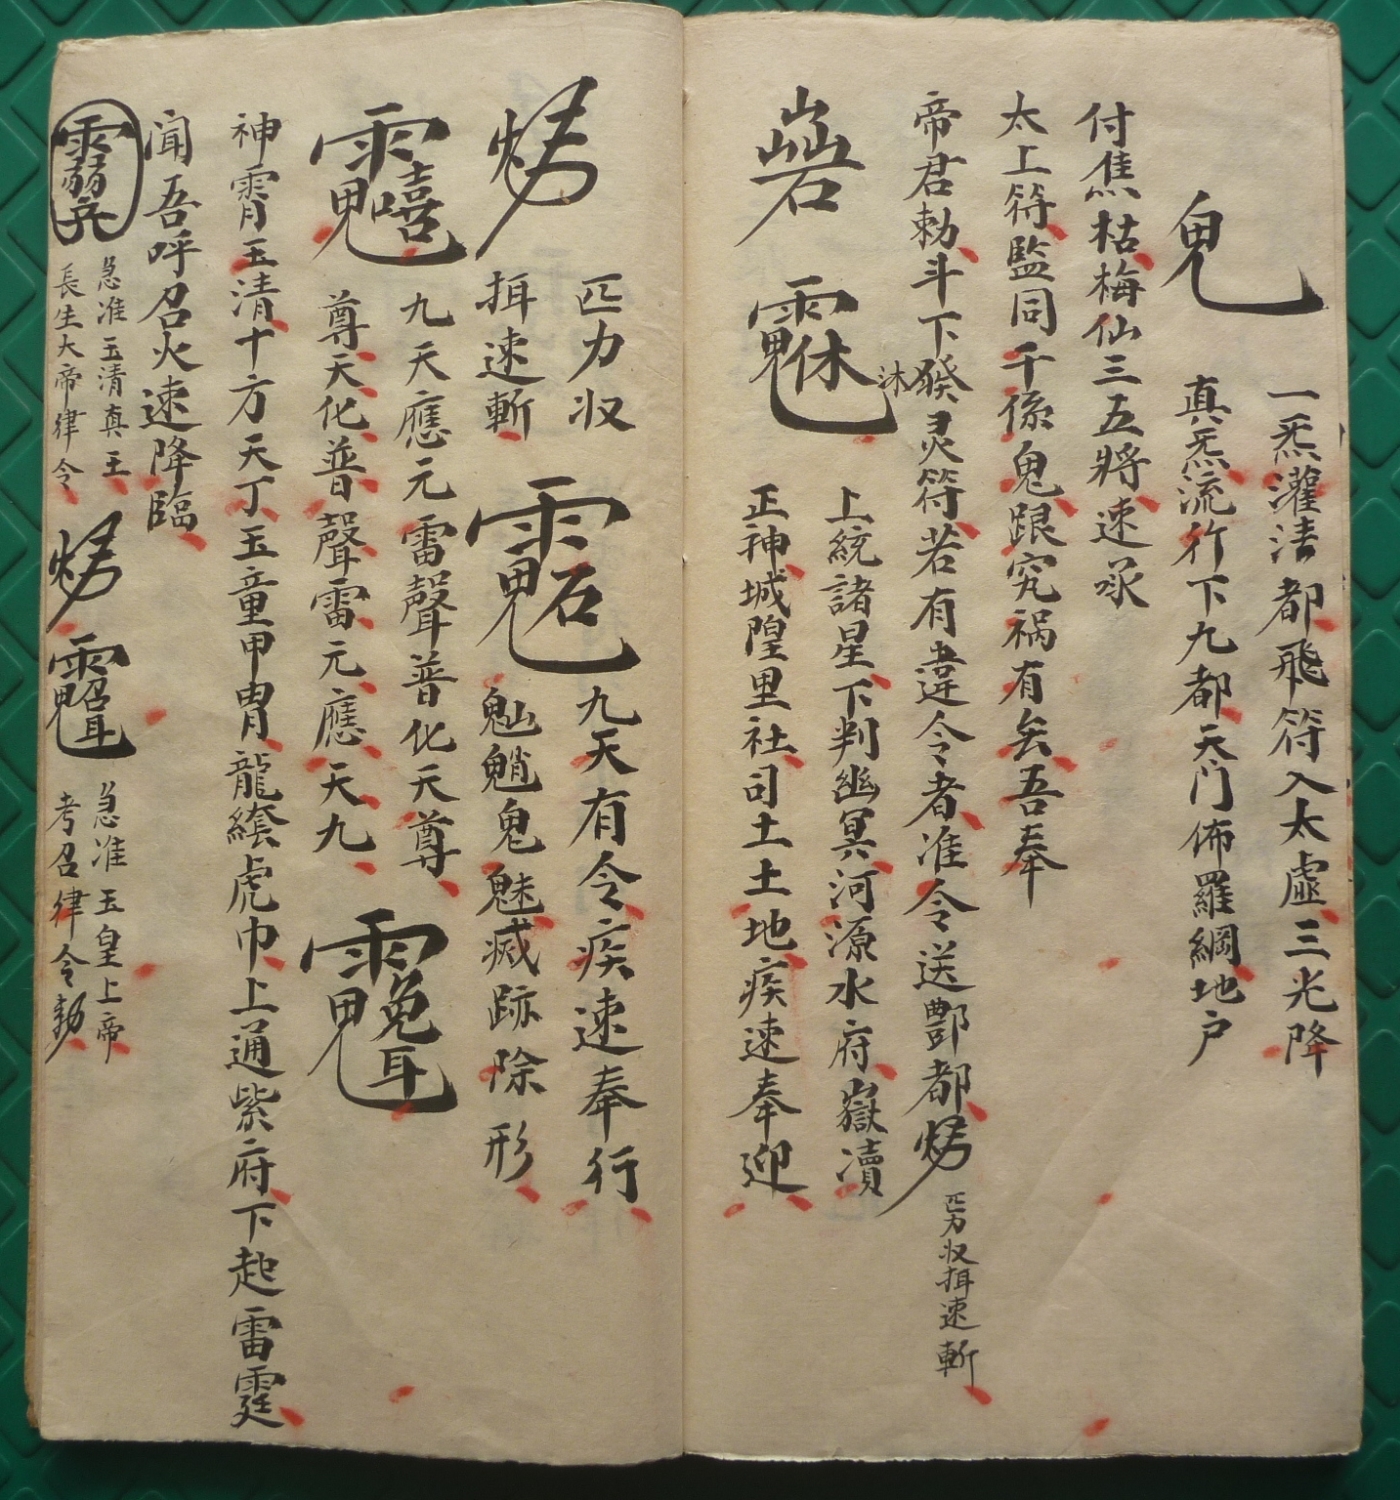 一炁灌注都飛符入太虛三光降
鬼
真炁流行下九都天门佈羅綱地户
付焦枯梅仙三五將速承
太上符監同千係鬼跟究祸有矣吾奉
帝君勅斗下发灵符若有違令者准令送酆都
匹力収挕速斬
沐
砦
上統諸星下判幽冥河源水府嶽瀆
正神城隍里社司土土地疾速奉迎
匹力収
挕速斬
九天有令疾速奉行
魈鬼魅烕跡除形
九天應元雷聲普化天尊
尊天化普聲雷元應天九
神霄玉清十方天丁玉童甲胄龍虎巾上通紫府下起雷霆
闻吾呼召火速降臨
急准玉清真王
長生大帝律令
急准玉皇上帝
考召律令勅